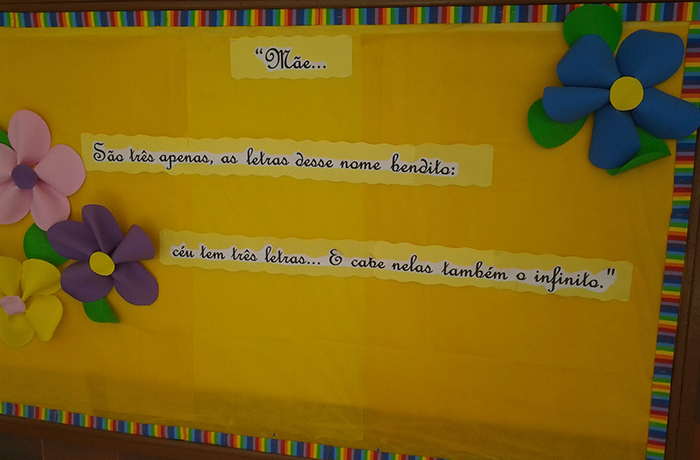 “Mãe...
São três apenas, as letras desse nome bendito:
céu tem três letras... E cabe nelas também o infinito."